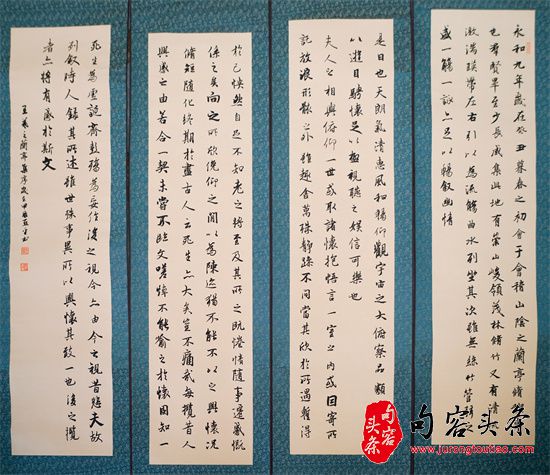 永和九年歲在癸丑暮春之初會于會稽山陰之蘭亭脩
也群賢畢至少長咸集此地有崇山峻領茂林脩竹又有清
激湍暎帶左右引以為流觴曲水列坐其次雖無絲竹管弦之
盛一觴一詠亦足以暢敘幽情
是日也天朗氣清惠風和暢仰觀宇宙之大俯察品類
以遊目騁懷足以極視聽之娛信可樂也
夫人之相與俯仰一世或取諸懷抱悟言一室之內或因寄所
託放浪形骸之外雖趣舍萬殊靜躁不同當其欣於所遇蹔得
於己快然自足不知老之將至及其所之既惓情隨事遷感慨
係之矣向之所欣俛仰之閒以為陳迹猶不能不以之興懷況
脩短隨化終期於盡古人云死生亦大矣豈不痛哉每攬昔人
興感之由若合一契未嘗不臨文嗟悼不能喻之於懷固知一
死生為虛誕齊彭殤為妄作後之視今亦由今之視昔悲夫故
列敘時人錄其所述雖世殊事異所以興懷其致一也後之攬
者亦將有感於斯文
王羲之蘭亭集序
头条
句容头条
www.jurongtoutiao.com